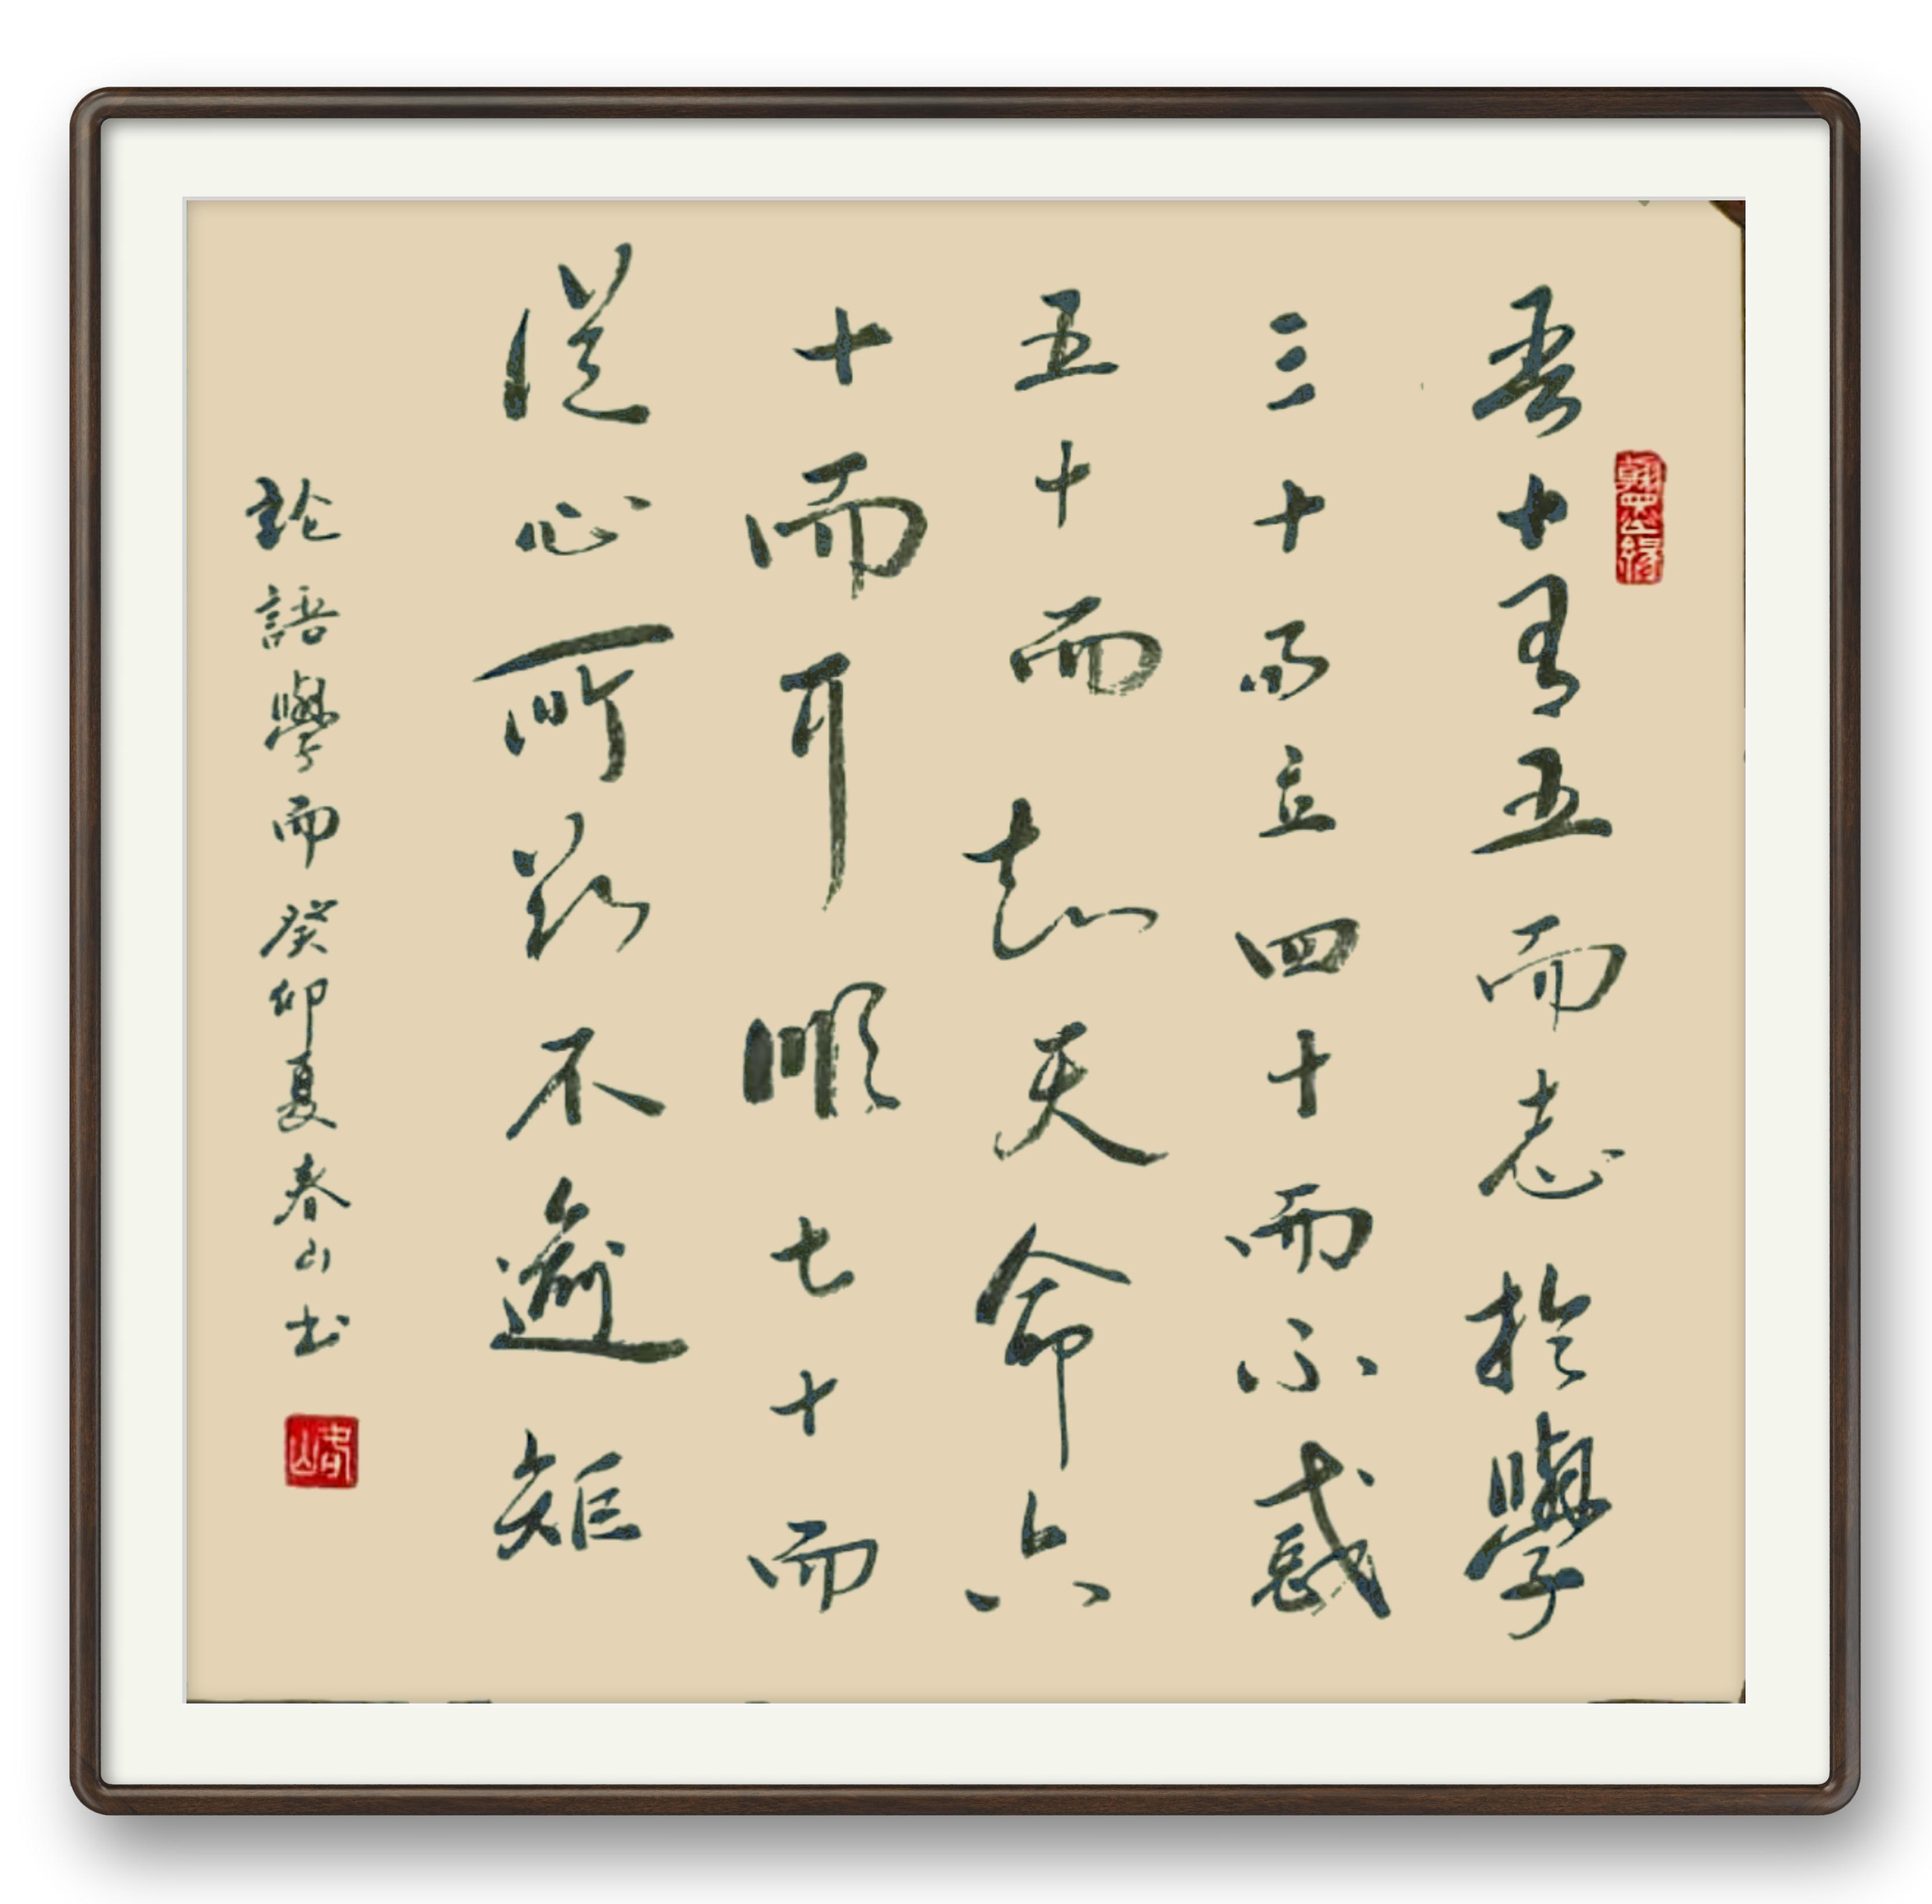 吾十有五而志於學
三十而立四十而不惑
五十而知天命六
十而耳順七十而
從心所欲不逾矩
論語學而癸卯夏春山书
翰墨缘
春山